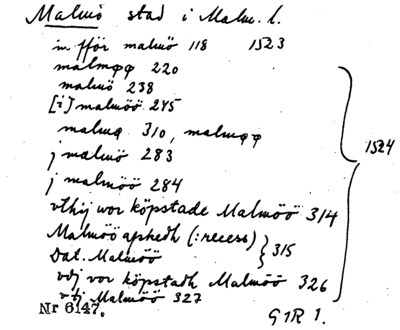 Malmö stad i Malm. l.
in för malmö 118 1523
malmøø 220
malmö 238
[i] malmöö 245
malmø 310, malmøø
j malmö 283
j malmöö 284
1524
vthij wor köpstade Malmöö 314
Malmöö afskedh (:recess)
315
Dat. Malmöö
vdj vor köpstadh Malmöö 326
vtj Malmöö 327
Nr 6147.
G1R 1.